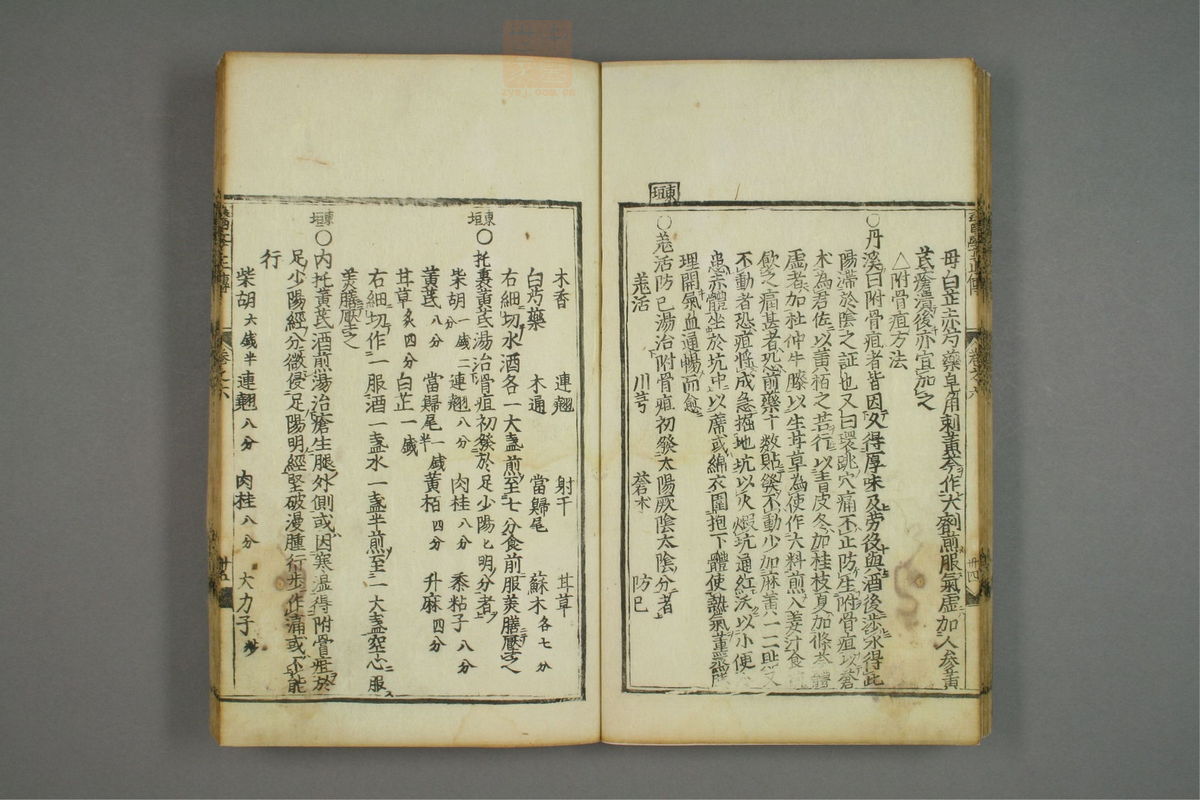 母白芷赤芍藥皂角刺黃芩作大劑煎服氣虛加人參黃
芪瘡潰後亦宜加之
△附骨疽方法
○丹溪曰附骨疽者皆因久得厚味及勞役與酒後涉水得此
陽滯於陰之証也又曰環跳穴痛不止防生附骨疽以蒼
朮為君佐以黃栢之苦行以青皮冬加桂枝夏加條芩體
虛者加杜仲牛膝以生甘草為使作大料煎入姜汁食
飲之痛甚者恐前藥十數貼發不動少加麻黃一二貼又
不動者恐疽將成急掘地坑以火煆坑通紅沃以小便
患赤體坐於坑中以席或綿衣圍抱下體使熱氣薰蒸
理開氣血通暢而愈
東垣
○羗活防已湯治附骨疽初發太陽厥陰太陰分者
羗活 川芎 蒼朮 防已
木香 連翹 射干 甘草
白芍藥 木通 當歸尾 蘇木各七分
右細切水酒各一大盞煎至七分食前服美膳壓之
東垣
○托裏黃芪湯治骨疽初發於足少陽明分者
柴胡一錢二分 連翹八分 肉桂八分 黍粘子八分
黃芪八分 當歸尾一錢半 黃栢四分 升麻四分
甘草炙四分 白芷一錢
右細切作一服酒一盞水一盞半煎至一大盞空心服
美膳壓之
東垣
○內托黃芪酒煎湯治瘡生腿外側或因寒濕得附骨疽於
足少陽經分微侵足陽明經堅破漫腫行步作痛或不能
行
柴胡六錢半 連翹八分 肉桂八分 大力子炒